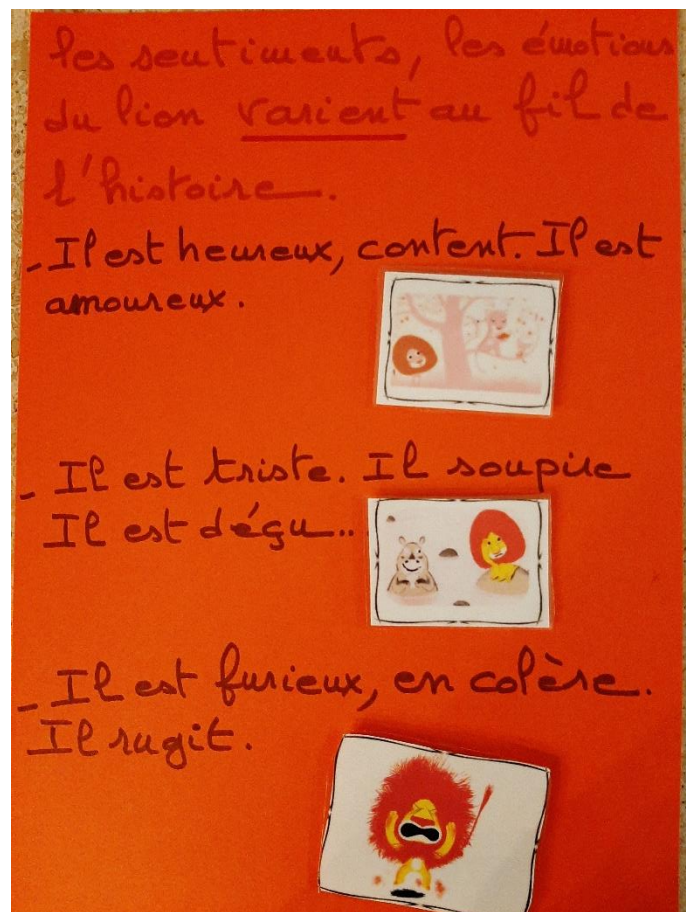 les sentiments, les émotions
du lion varient au fil de
l'histoire.
- Il est heureux, content. Il est
amoureux.
- Il est triste. Il soupire
Il est déçu..
- Il est furieux, en colère.
Il rugit.